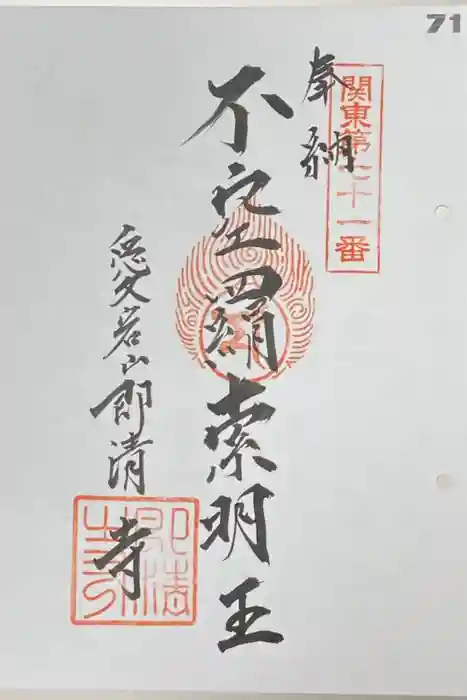 71
関東第七十一番
奉納
不空羂索明王
愛宕山即清寺
即清寺